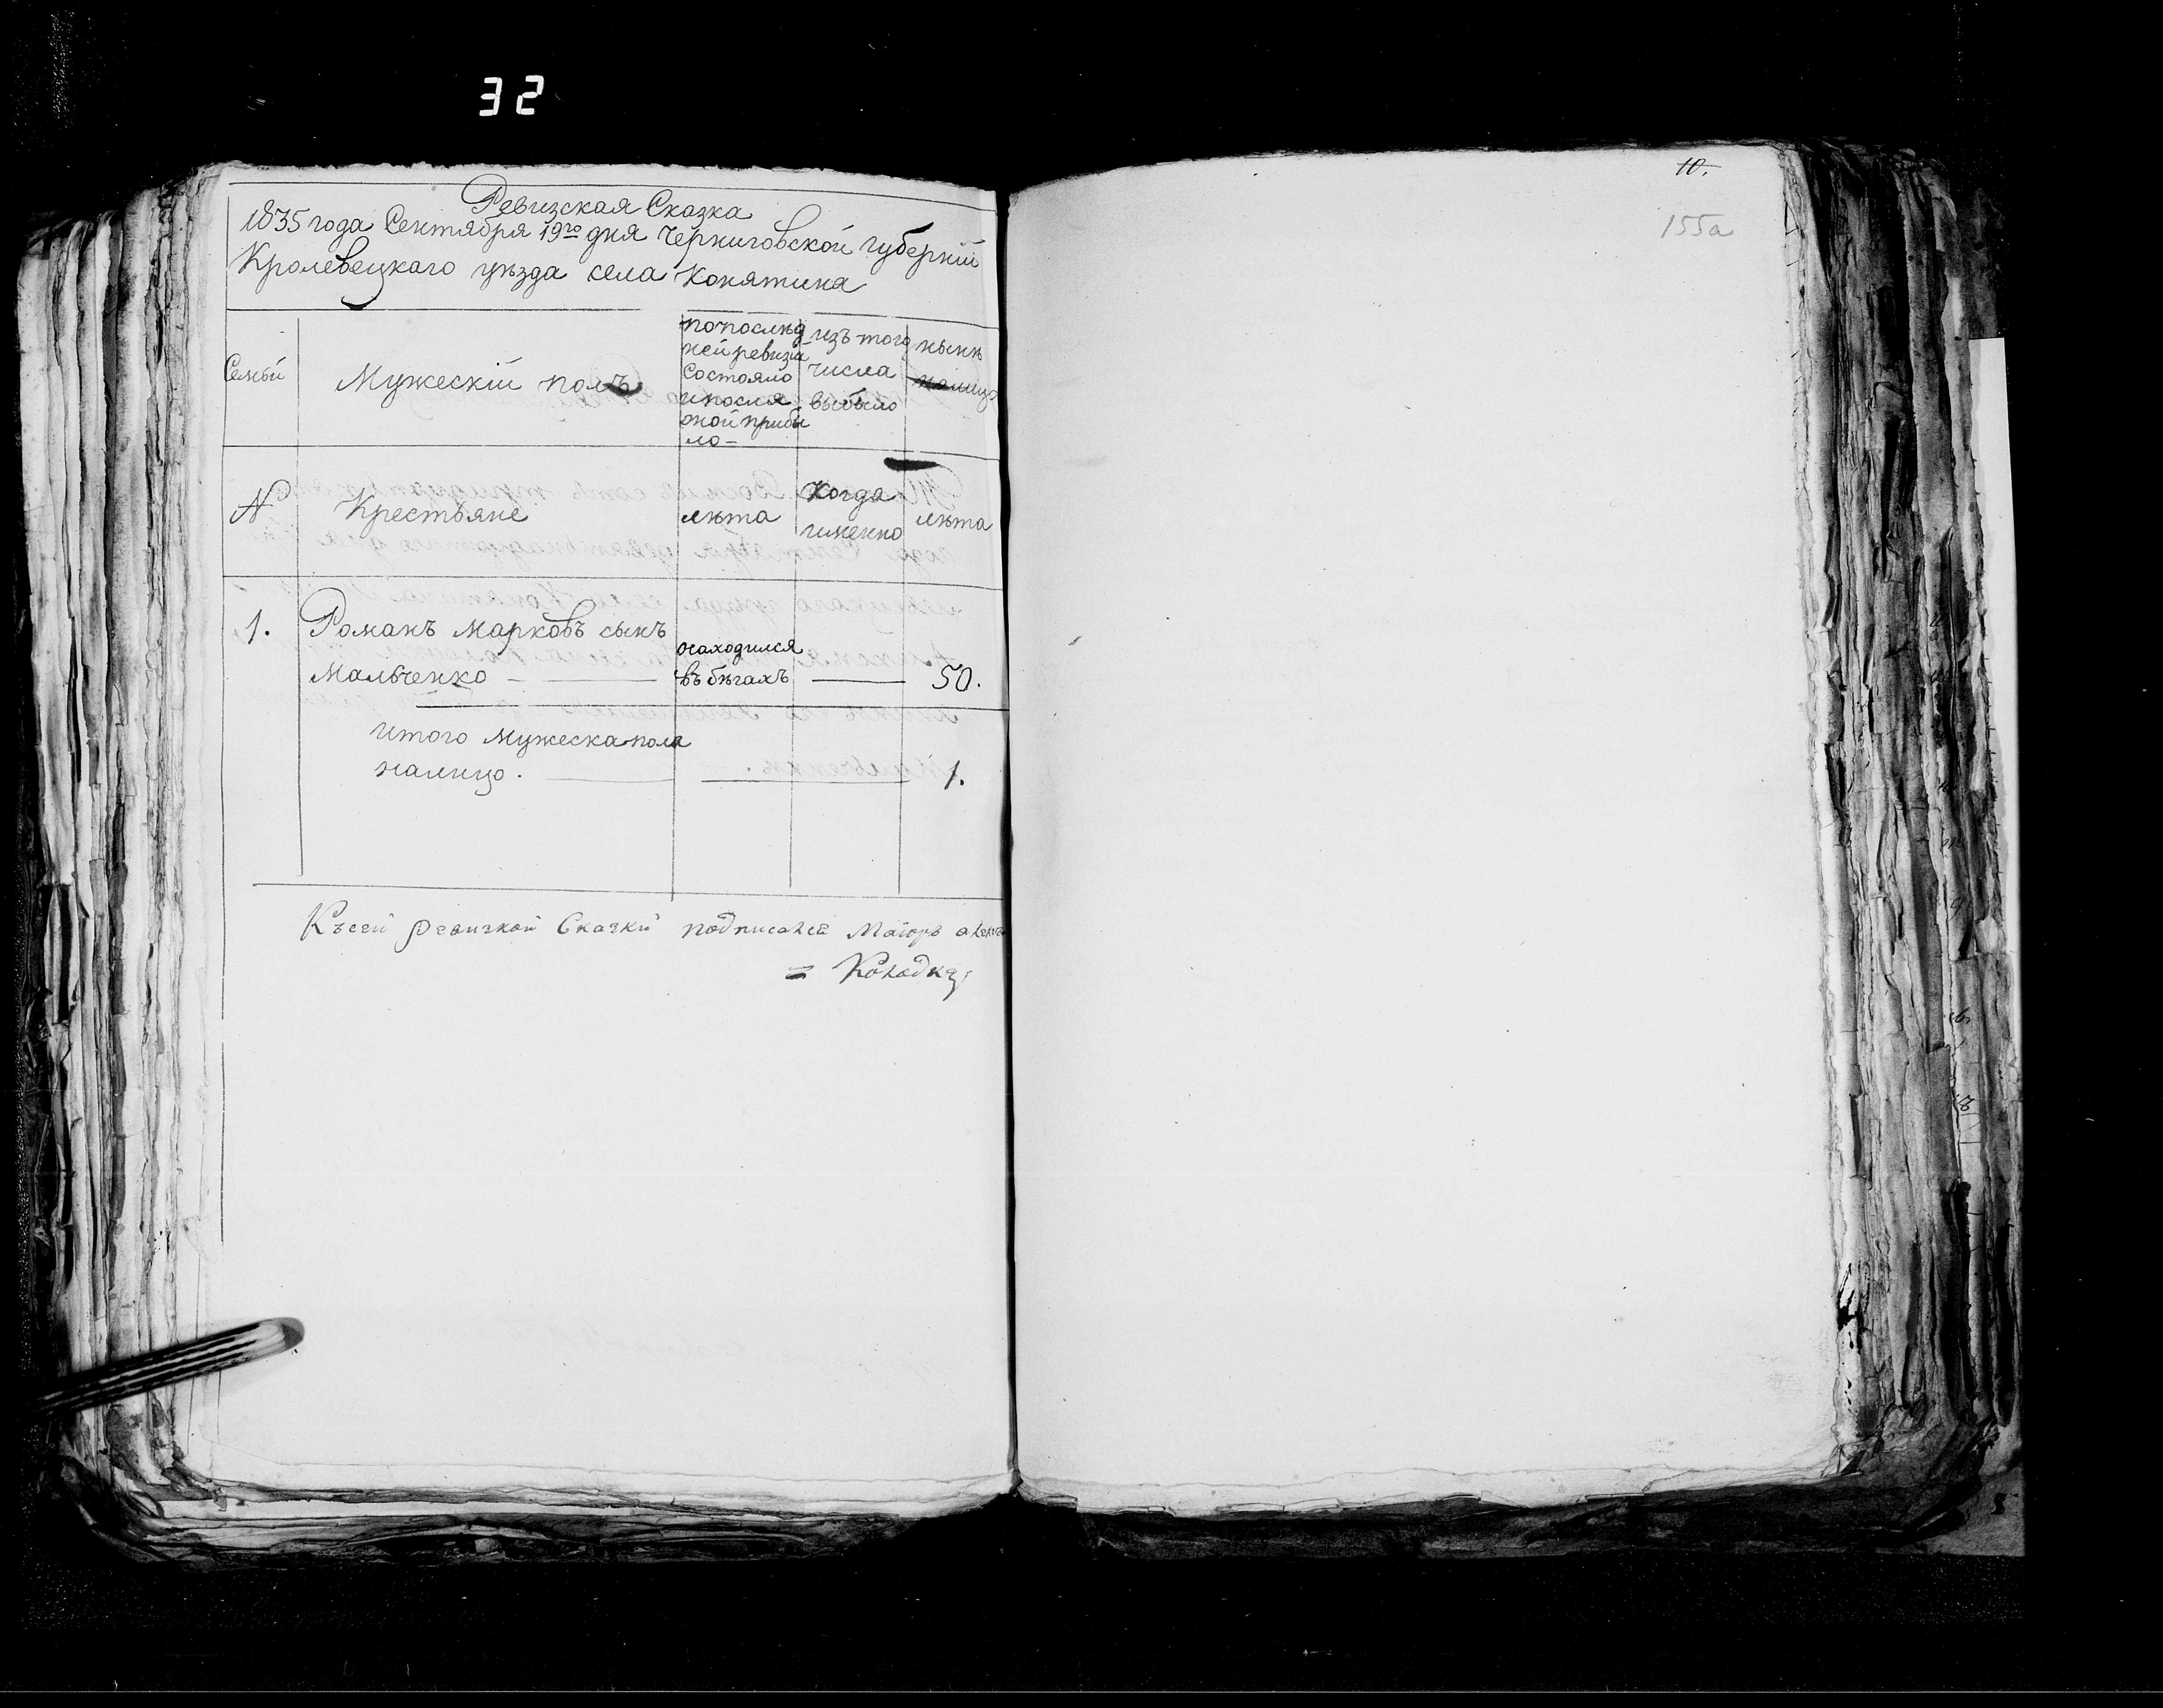 32
Ревизская Сказка
1835 года Сентября 19го дня Черниговской губернїи
Кролевецкаго уѣзда села Конятина
Семьи
Мужескїй полъ
попослѣд
ней ревизїи
состояло
и посля
оной прибы
ло-
изъ того
числа
выбыло
нынѣ
налицо
№
Крестьяне
лѣта
Когда
именно
лѣта
1.
Романъ Марковъ сынъ
Мальченко
находился
въ бѣгахъ
50.
Итого Мужеска пола
налицо.
1.
Къ сей ревизкой Сказки подписался Маїоръ
Колодка
10.
155а